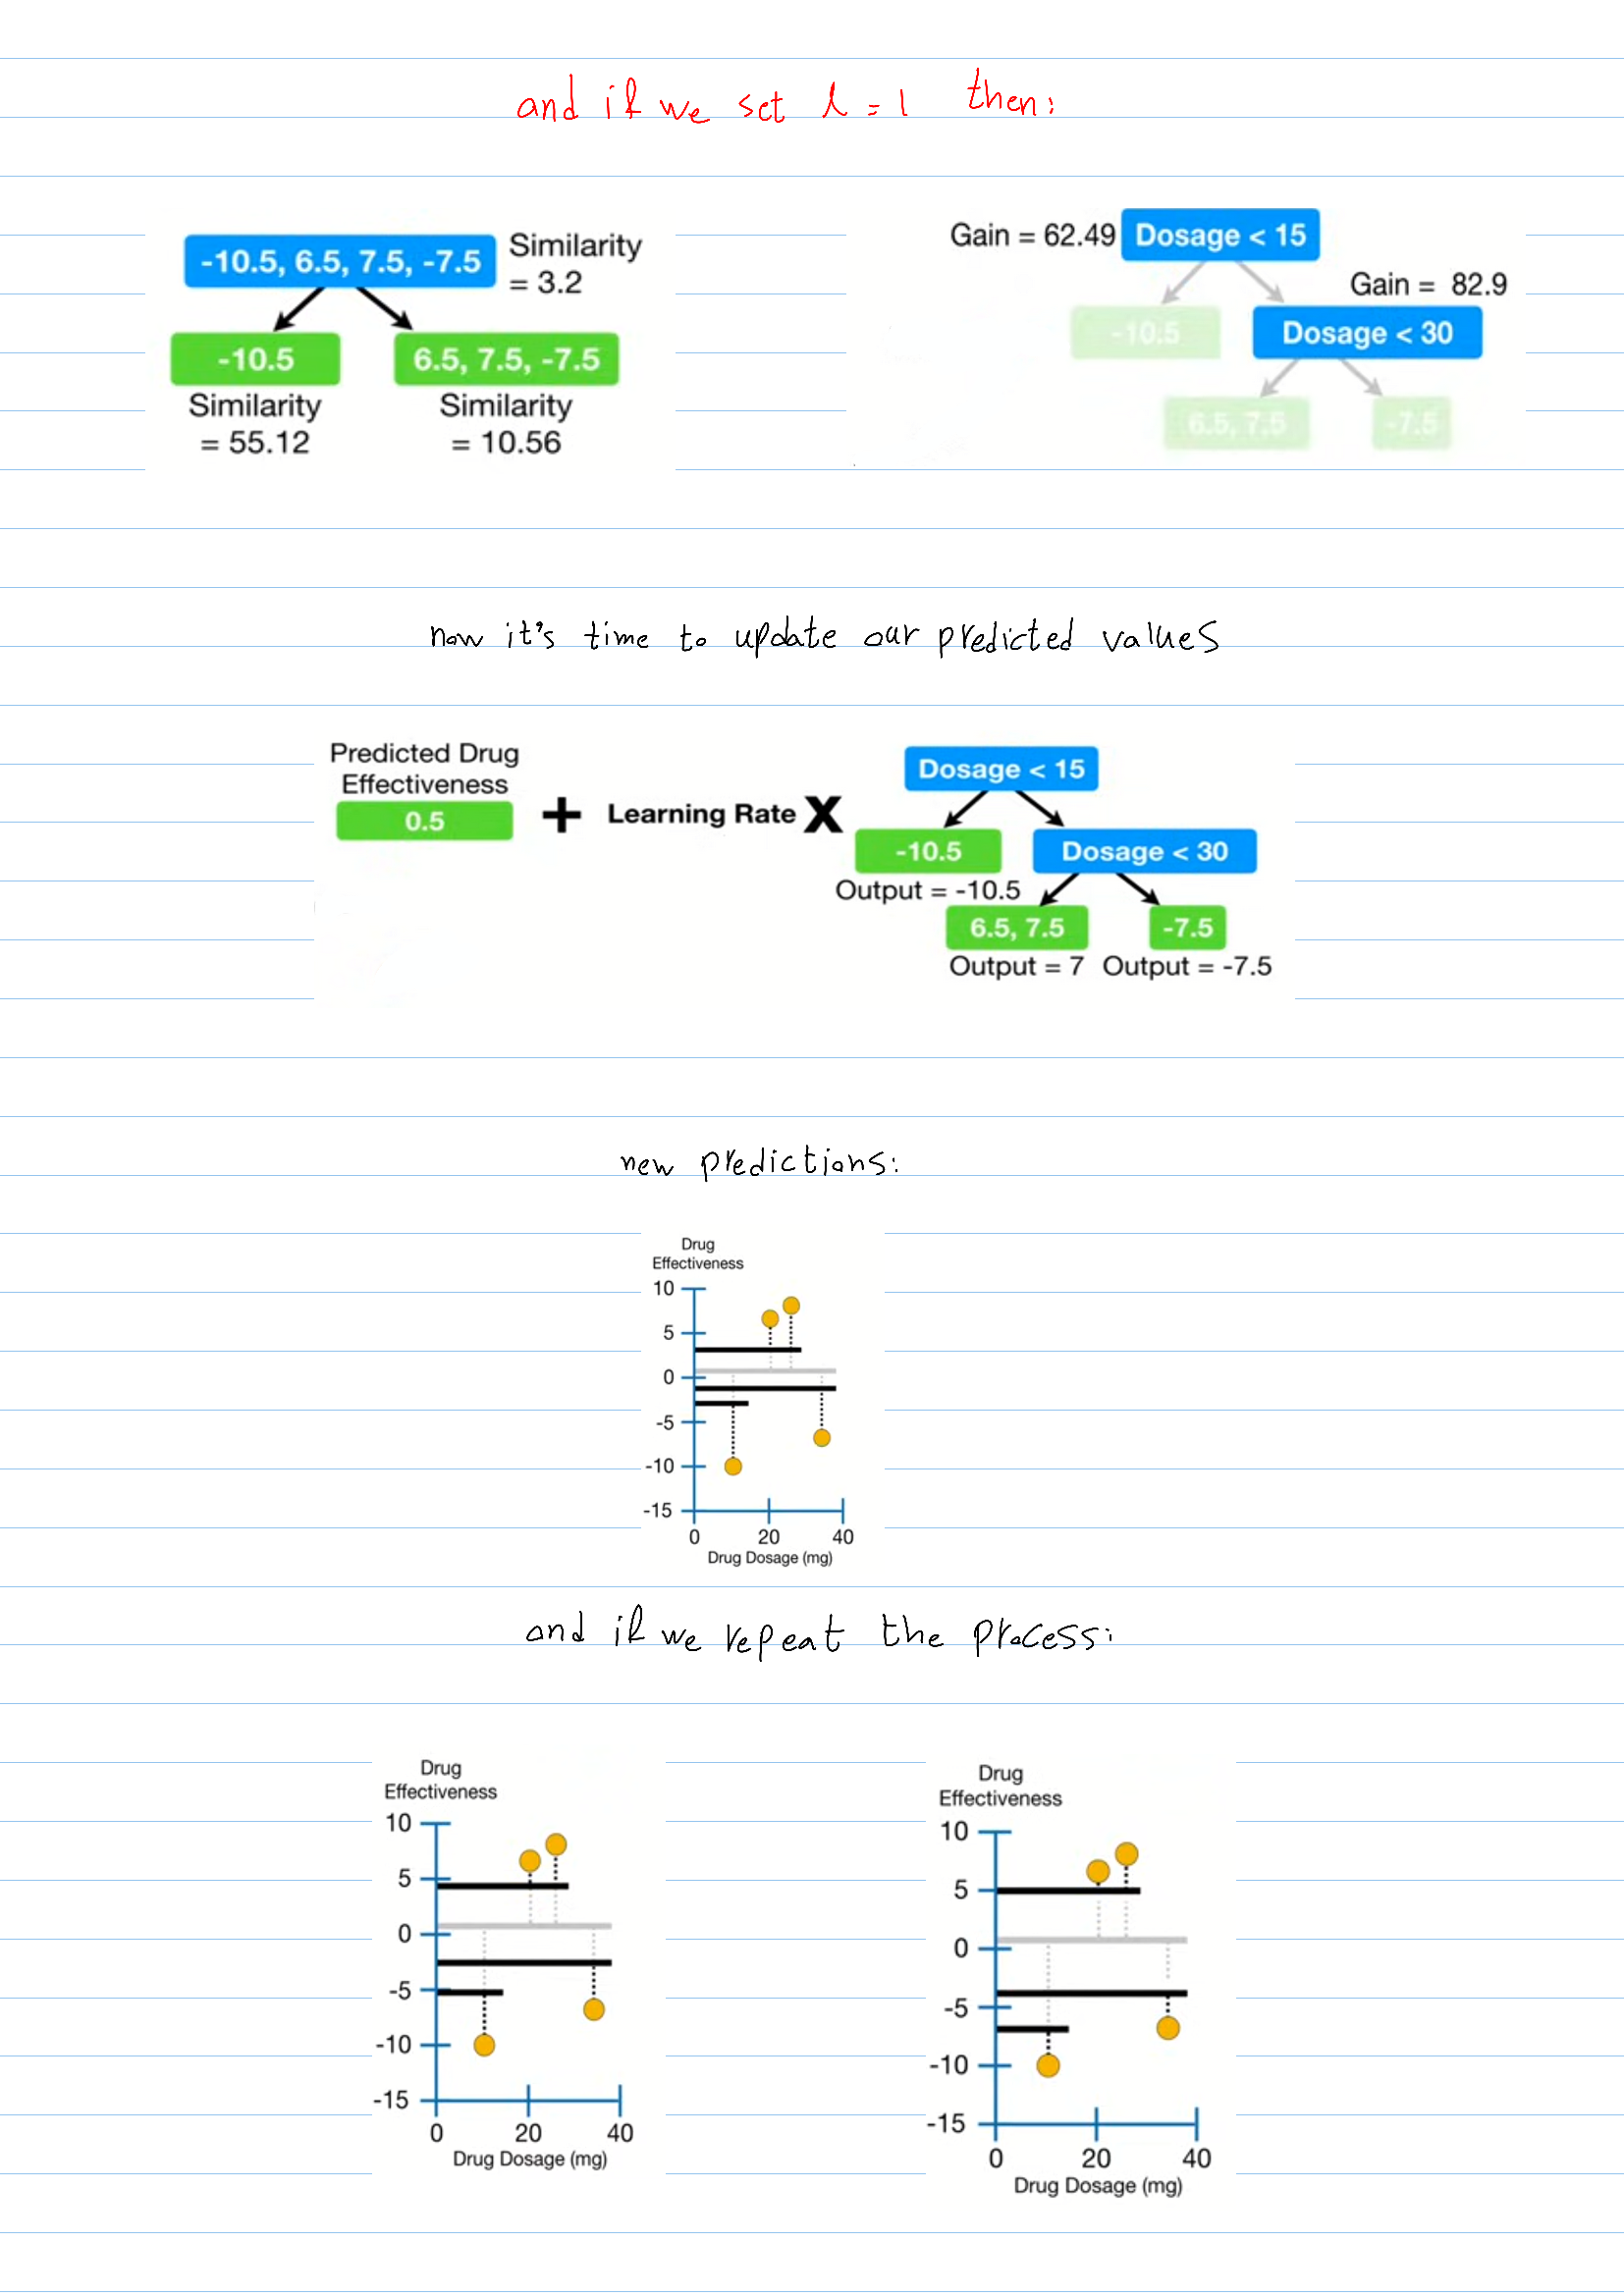 and if we set λ = 1 then:
-10.5, 6.5, 7.5, -7.5
Similarity
= 3.2
-10.5
6.5, 7.5, -7.5
Similarity
= 55.12
Similarity
= 10.56
Gain = 62.49
Dosage < 15
Gain = 82.9
-10.5
Dosage < 30
6.5, 7.5
-7.5
now it's time to update our predicted values
Predicted Drug
Effectiveness
0.5
+ Learning Rate X
Dosage < 15
-10.5
Dosage < 30
Output = -10.5
6.5, 7.5
-7.5
Output = 7
Output = -7.5
new predictions:
Drug
Effectiveness
10
5
0
-5
-10
-15
0 20 40
Drug Dosage (mg)
and if we repeat the process:
Drug
Effectiveness
10
5
0
-5
-10
-15
0 20 40
Drug Dosage (mg)
Drug
Effectiveness
10
5
0
-5
-10
-15
0 20 40
Drug Dosage (mg)